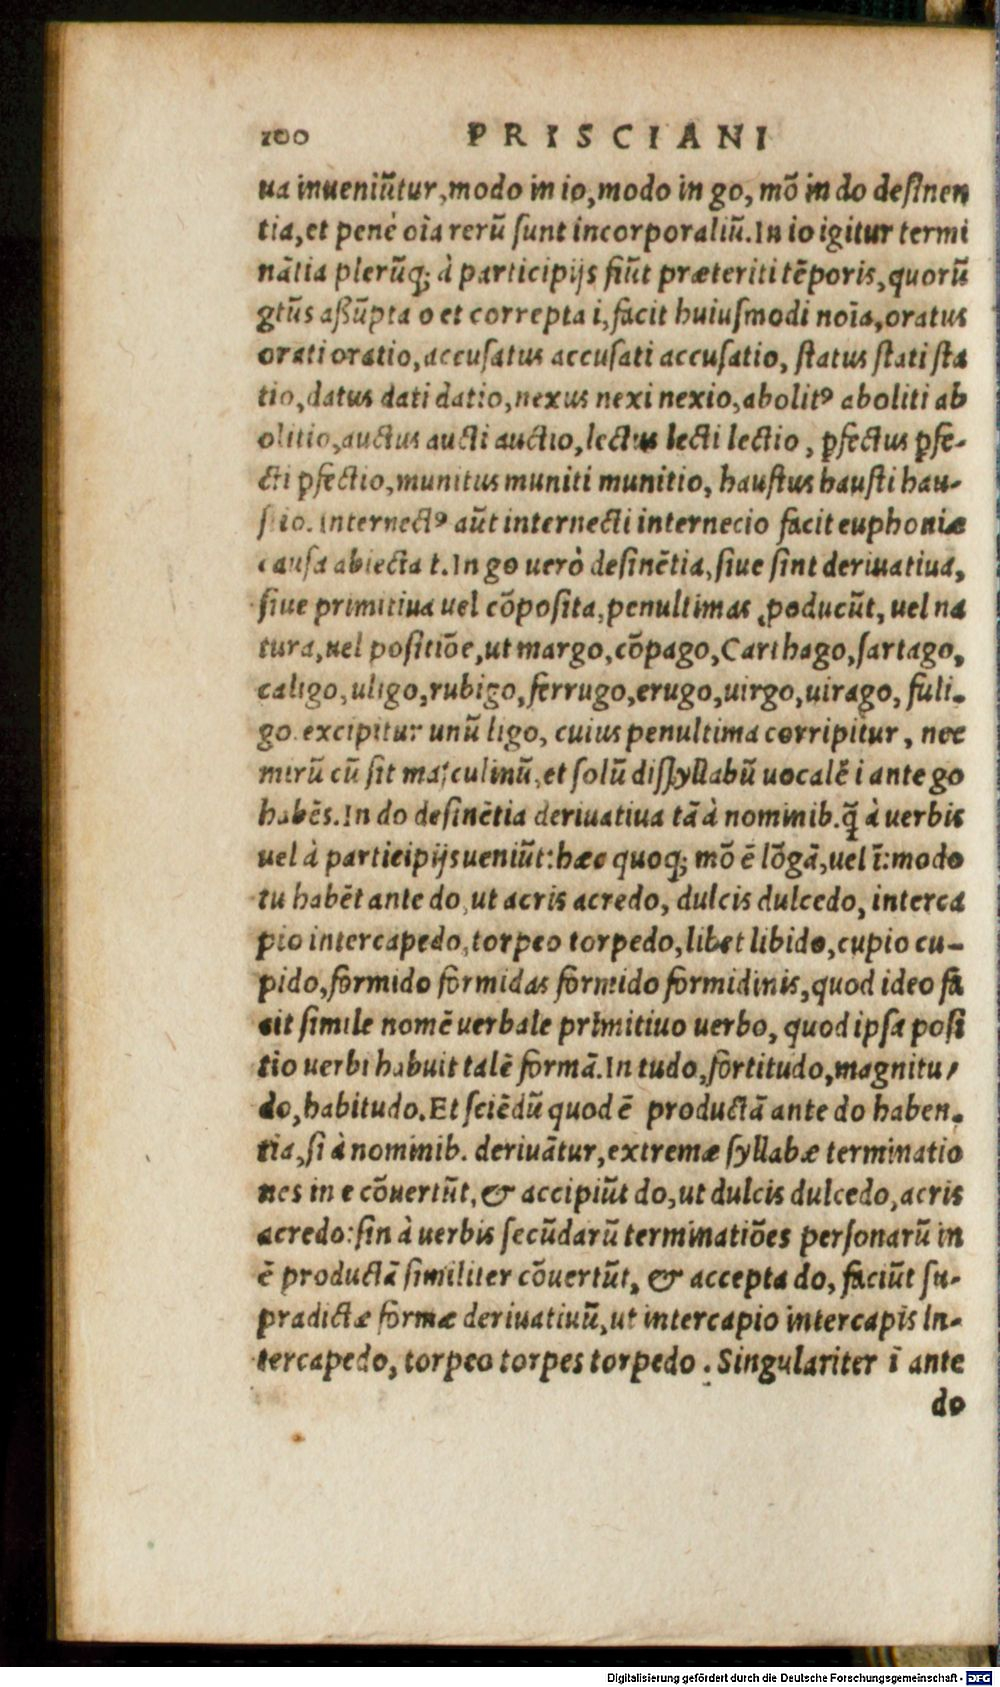 100 PRISCIANI
ua inueniũtur, modo in io, modo in go, mõ in do desinen
tia, et penè oīa rerũ sunt incorporaliũ. In io igitur termi
nãtia plerũq; à participijs fiũt præteriti tẽporis, quorũ
gtũs aßũpta o et correpta i, facit huiusmodi noīa, oratus
orati oratio, accusatus accusati accusatio, status stati sta
tio, datus dati datio, nexus nexi nexio, abolitꝰ aboliti ab
olitio, auctus aucti auctio, lectus lecti lectio, ꝑfectus ꝑfe-
cti ꝑfectio, munitus muniti munitio, haustus hausti hau-
stio. Internectꝰ aũt internecti internecio facit euphoniæ
causa abiecta t. In go uerò desinẽtia, siue sint deriuatiua,
siue primitiua uel cõposita, penultimas ꝓducũt, uel na
tura, uel positiõe, ut margo, cõpago, Carthago, sartago,
caligo, uligo, rubigo, ferrugo, erugo, uirgo, uirago, fuli-
go. excipitur unũ ligo, cuius penultima corripitur, nec
mirũ cũ sit masculinũ, et solũ dissyllabũ uocalẽ i ante go
habẽs. In do desinẽtia deriuatiua tã à nominib. q̃ à uerbis
uel à participijs ueniũt: hæc quoq; mõ ē lõgã, uel ī: modo
tu habẽt ante do, ut acris acredo, dulcis dulcedo, interca
pio intercapedo, torpeo torpedo, libet libido, cupio cu-
pido, formido formidas formido formidinis, quod ideo fa
cit simile nomẽ uerbale primitiuo uerbo, quod ipsa posi
tio uerbi habuit talẽ formã. In tudo, fortitudo, magnitu-
do, habitudo. Et sciẽdũ quod ē productã ante do haben-
tia, si à nominib. deriuãtur, extremæ syllabæ terminatio
nes in e cõuertũt, & accipiũt do, ut dulcis dulcedo, acris
acredo: sin à uerbis secũdarũ terminatiões personarũ in
ē productã similiter cõuertũt, & accepta do, faciũt su-
pradictæ formæ deriuatiuũ, ut intercapio intercapis In-
tercapedo, torpeo torpes torpedo. Singulariter ī ante
do
Digitalisierung gefördert durch die Deutsche Forschungsgemeinschaft - DFG